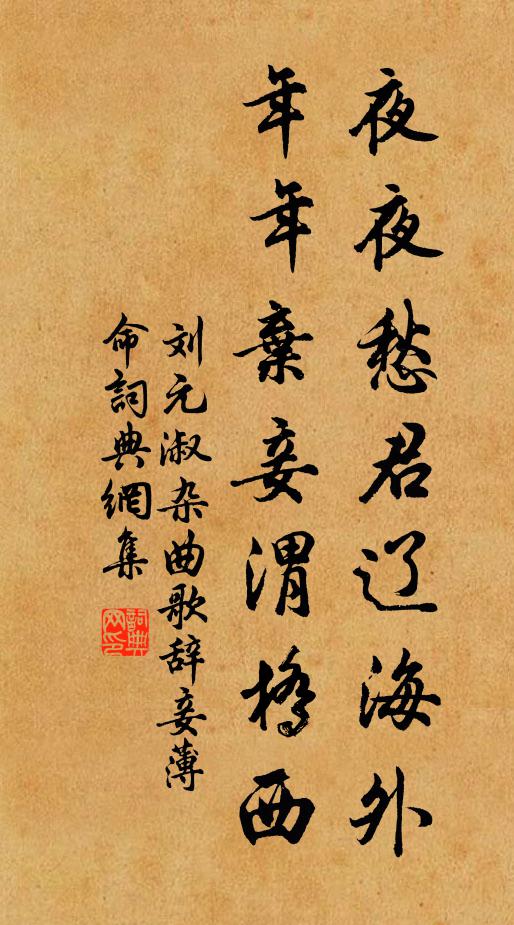 夜夜愁君辽海外
年年棄妾渭橋西
刘元淑杂曲歌辞妾薄
命詞典網集
詞典
网印